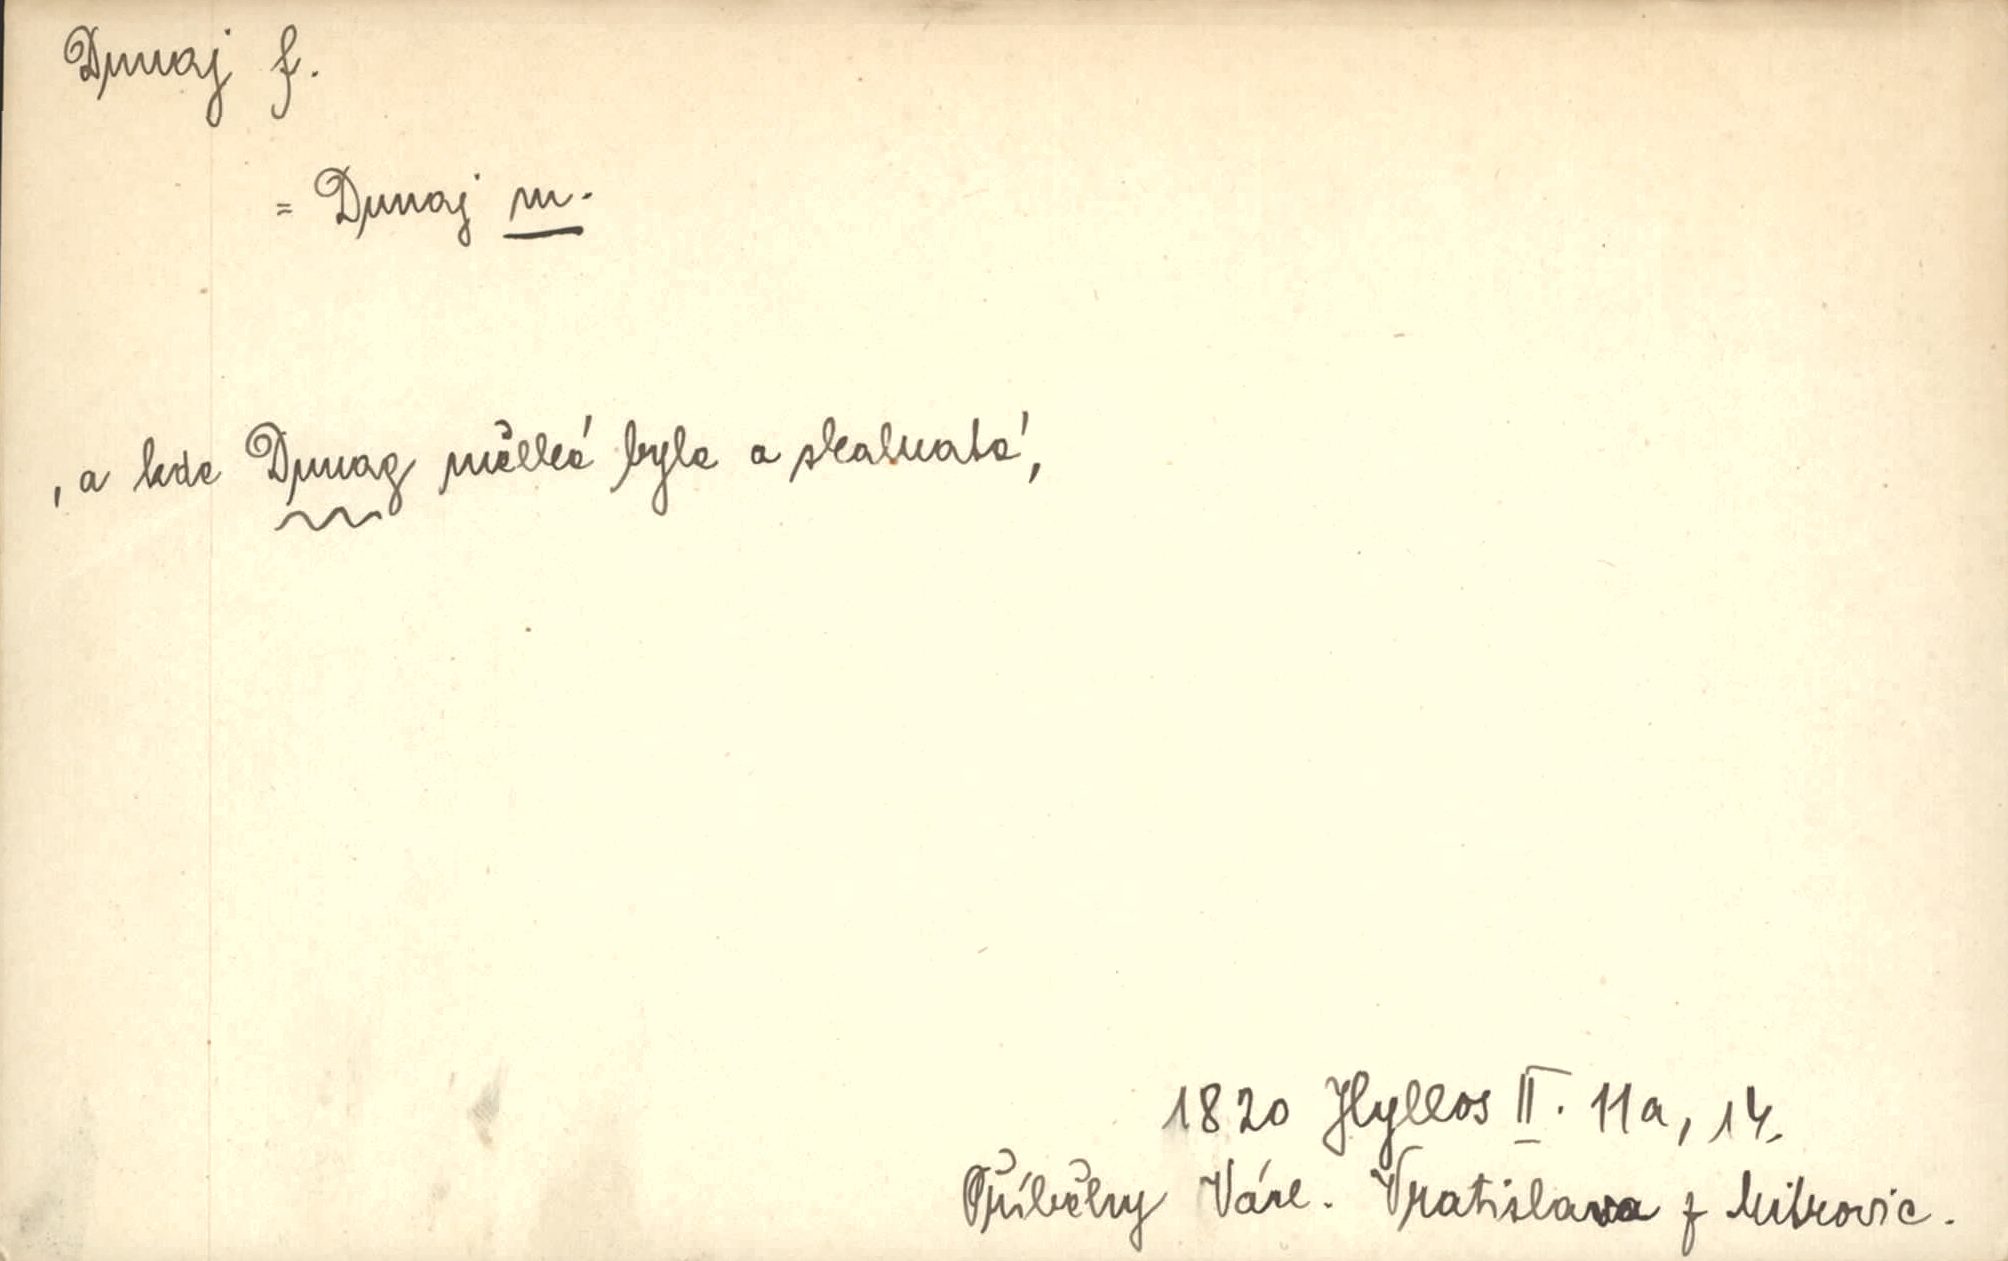 Dunaj f.
= Dunaj m.
, a kde Dunag mělká byla a skalnatá,
1820 Hyllos II. 11a, 14.
Příběhy Václ. Vratislava z Mitrovic.